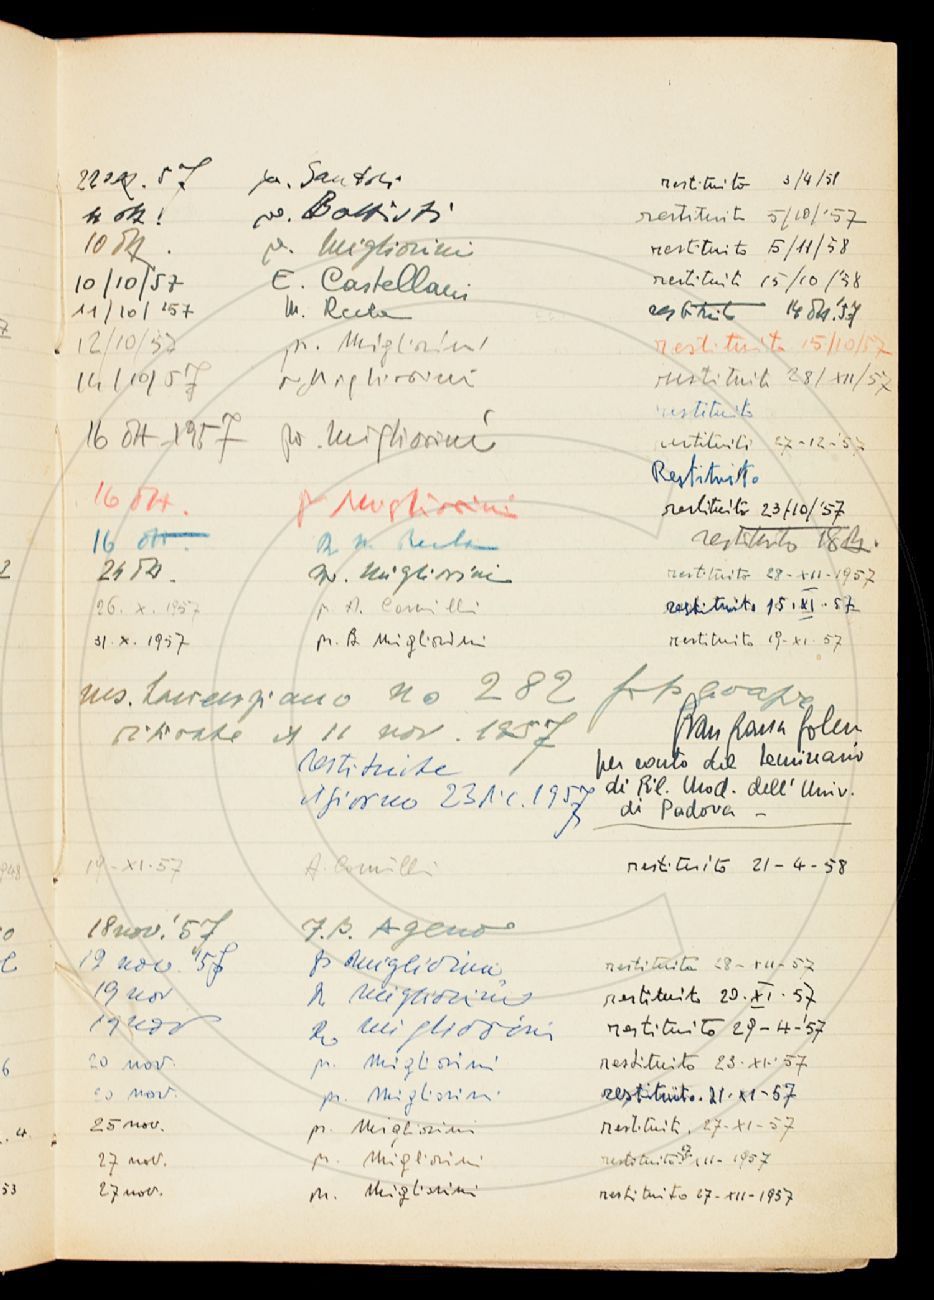 22 57 Santoli restituito 3/4/58
Battisti restituito 5/10/'57
10 ott. Migliorini restituito 5/11/58
10/10/57 E. Castellani restituito 15/10/58
11/10/'57 M. restituito 14 ott. '57
12/10/57 pr. Migliorini restituito 15/10/57
14/10/57 Migliorini restituito 28/XII/57
restituito
16 ott. 1957 pr. Migliorini restituito 27-12-57
Restituito
16 ott. Migliorini restituito 23/10/'57
16 ott. restituito 18
24 ott. pr. Migliorini restituito 28-XII-1957
26. X. 1957 restituito 15. XI. 57
31. X. 1957 pr. B. Migliorini restituito 19-XI-57
ms. Laurenziano no 282 fotografie
ritirate il 11 nov. 1957
restituite per conto del Seminario
il giorno 23 dic. 1957 di Fil. Mod. dell'Univ.
di Padova -
19-XI-57 restituito 21-4-58
18 nov. '57 F. B. Ageno
19 nov. '57 pr Migliorini restituito 28-XII-57
19 nov pr Migliorini restituito 20. XI. 57
19 nov pr Migliorini restituito 29-4-'57
20 nov. pr. Migliorini restituito 23-XI-57
20 nov. pr. Migliorini restituito. 21-XI-57
25 nov. pr. Migliorini restituito. 27-XI-57
27 nov. pr. Migliorini restituito XII-1957
27 nov. pr. Migliorini restituito 27-XII-1957